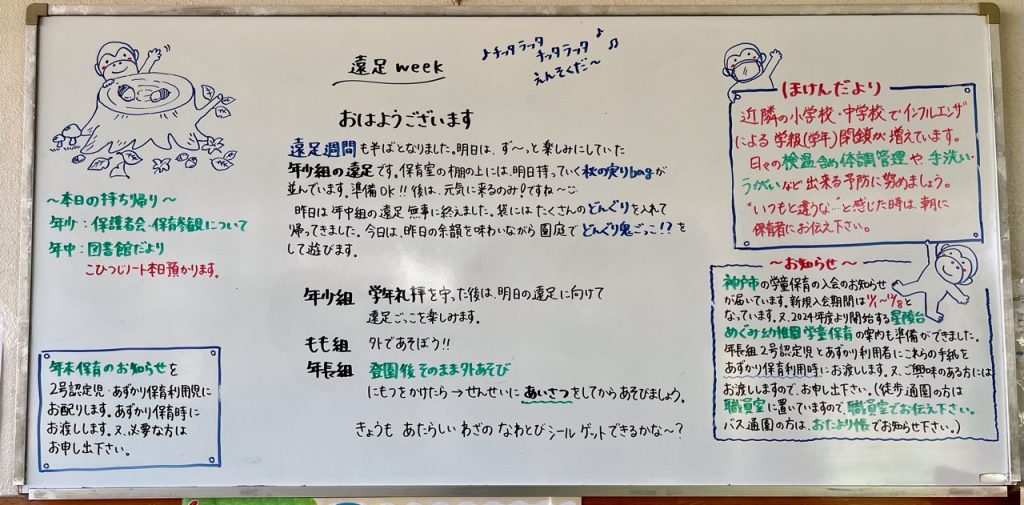 遠足week
♪チッタ ラッタ チッタ ラッタ♪♫
えんそくだ〜
おはようございます
遠足週間も半ばとなりました。明日は、ず〜っと楽しみにしていた
年少組の遠足です。保育室の棚の上には、明日持っていく秋の実りbagが
並んでいます。準備OK!! 後は、元気に来るのみ!ですね〜
昨日は年中組の遠足無事に終えました。袋にはたくさんのどんぐりを入れて
帰ってきました。今日は、昨日の余韻を味わいながら園庭でどんぐり鬼ごっこ!?を
して遊びます。
年少組 学年礼拝を守った後は、明日の遠足に向けて
遠足ごっこを楽しみます。
もも組 外であそぼう!!
年長組 登園後そのまま外あそび
にもつをかけたら→せんせいにあいさつをしてからあそびましょう。
きょうも あたらしい わざの なわとびシール ゲットできるかな〜?
〜本日の持ち帰り〜
年少:保護者会・保育参観について
年中:図書館だより
こひつじノート本日預かります。
年末保育のお知らせを
2号認定児・あずかり保育利用児に
お配りします。あずかり保育時に
お渡しします。又、必要な方は
お申し出下さい。
ほけんだより
近隣の小学校・中学校でインフルエンザ
による学級(学年)閉鎖が増えています。
日々の検温含め体調管理や手洗い・
うがいなど出来る予防に努めましょう。
“いつもと違うな…”と感じた時は、朝に
保育者にお伝え下さい。
〜お知らせ〜
神戸市の学童保育の入会のお知らせ
が届いています。新規入会期間は11/1〜11/8と
なっています。又、2024年度より開始する星陵台
めぐみ幼稚園学童保育の案内も準備ができました。
年長組2号認定児とあずかり利用者にこれらの手紙を
あずかり保育利用時にお渡しします。又、ご興味のある方には
お渡ししますので、お申し出下さい。(徒歩通園の方は
職員室に置いていますので、職員室でお伝え下さい。
バス通園の方は、おたより帳でお知らせ下さい。)